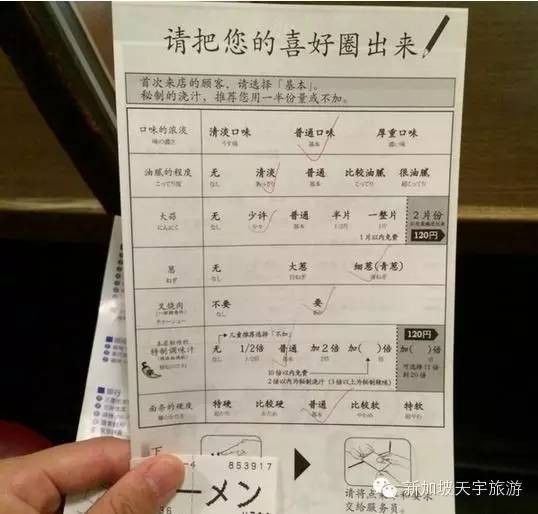 请把您的喜好圈出来
首次来店的顾客，请选择「基本」。
秘制的浇汁，推荐您用一半份量或不加。
口味的浓淡 清淡口味 普通口味 厚重口味
味の濃さ うす味 基本 濃い味
油腻的程度 无 清淡 普通 比较油腻 很油腻
こってり度 なし あっさり 基本 こってり 超こってり
大蒜 无 少许 普通 半片 一整片 2片份
にんにく なし 少々 基本 1/2片 1片
1片以内免费 120円
葱 无 大葱 细葱(青葱)
ねぎ なし 白ねぎ 青ねぎ
叉烧肉 不要 要
チャーシュー なし あり
儿童推荐选择「不加」 120円
特制调味汁 无 1/2倍 普通 加2倍 加( )倍 加( )倍
なし 1/2倍 基本 2倍
10倍以内免费 可选择11倍
2倍以内为秘制浇汁(3倍以上为秘制辣味) 到20倍
面条的硬度 特硬 比较硬 普通 比较软 特软
麺のかたさ 超かた かため 基本 やわめ 超やわ
下
-4 853917
ーメン
请将点
交给服务员。
新加坡天宇旅游